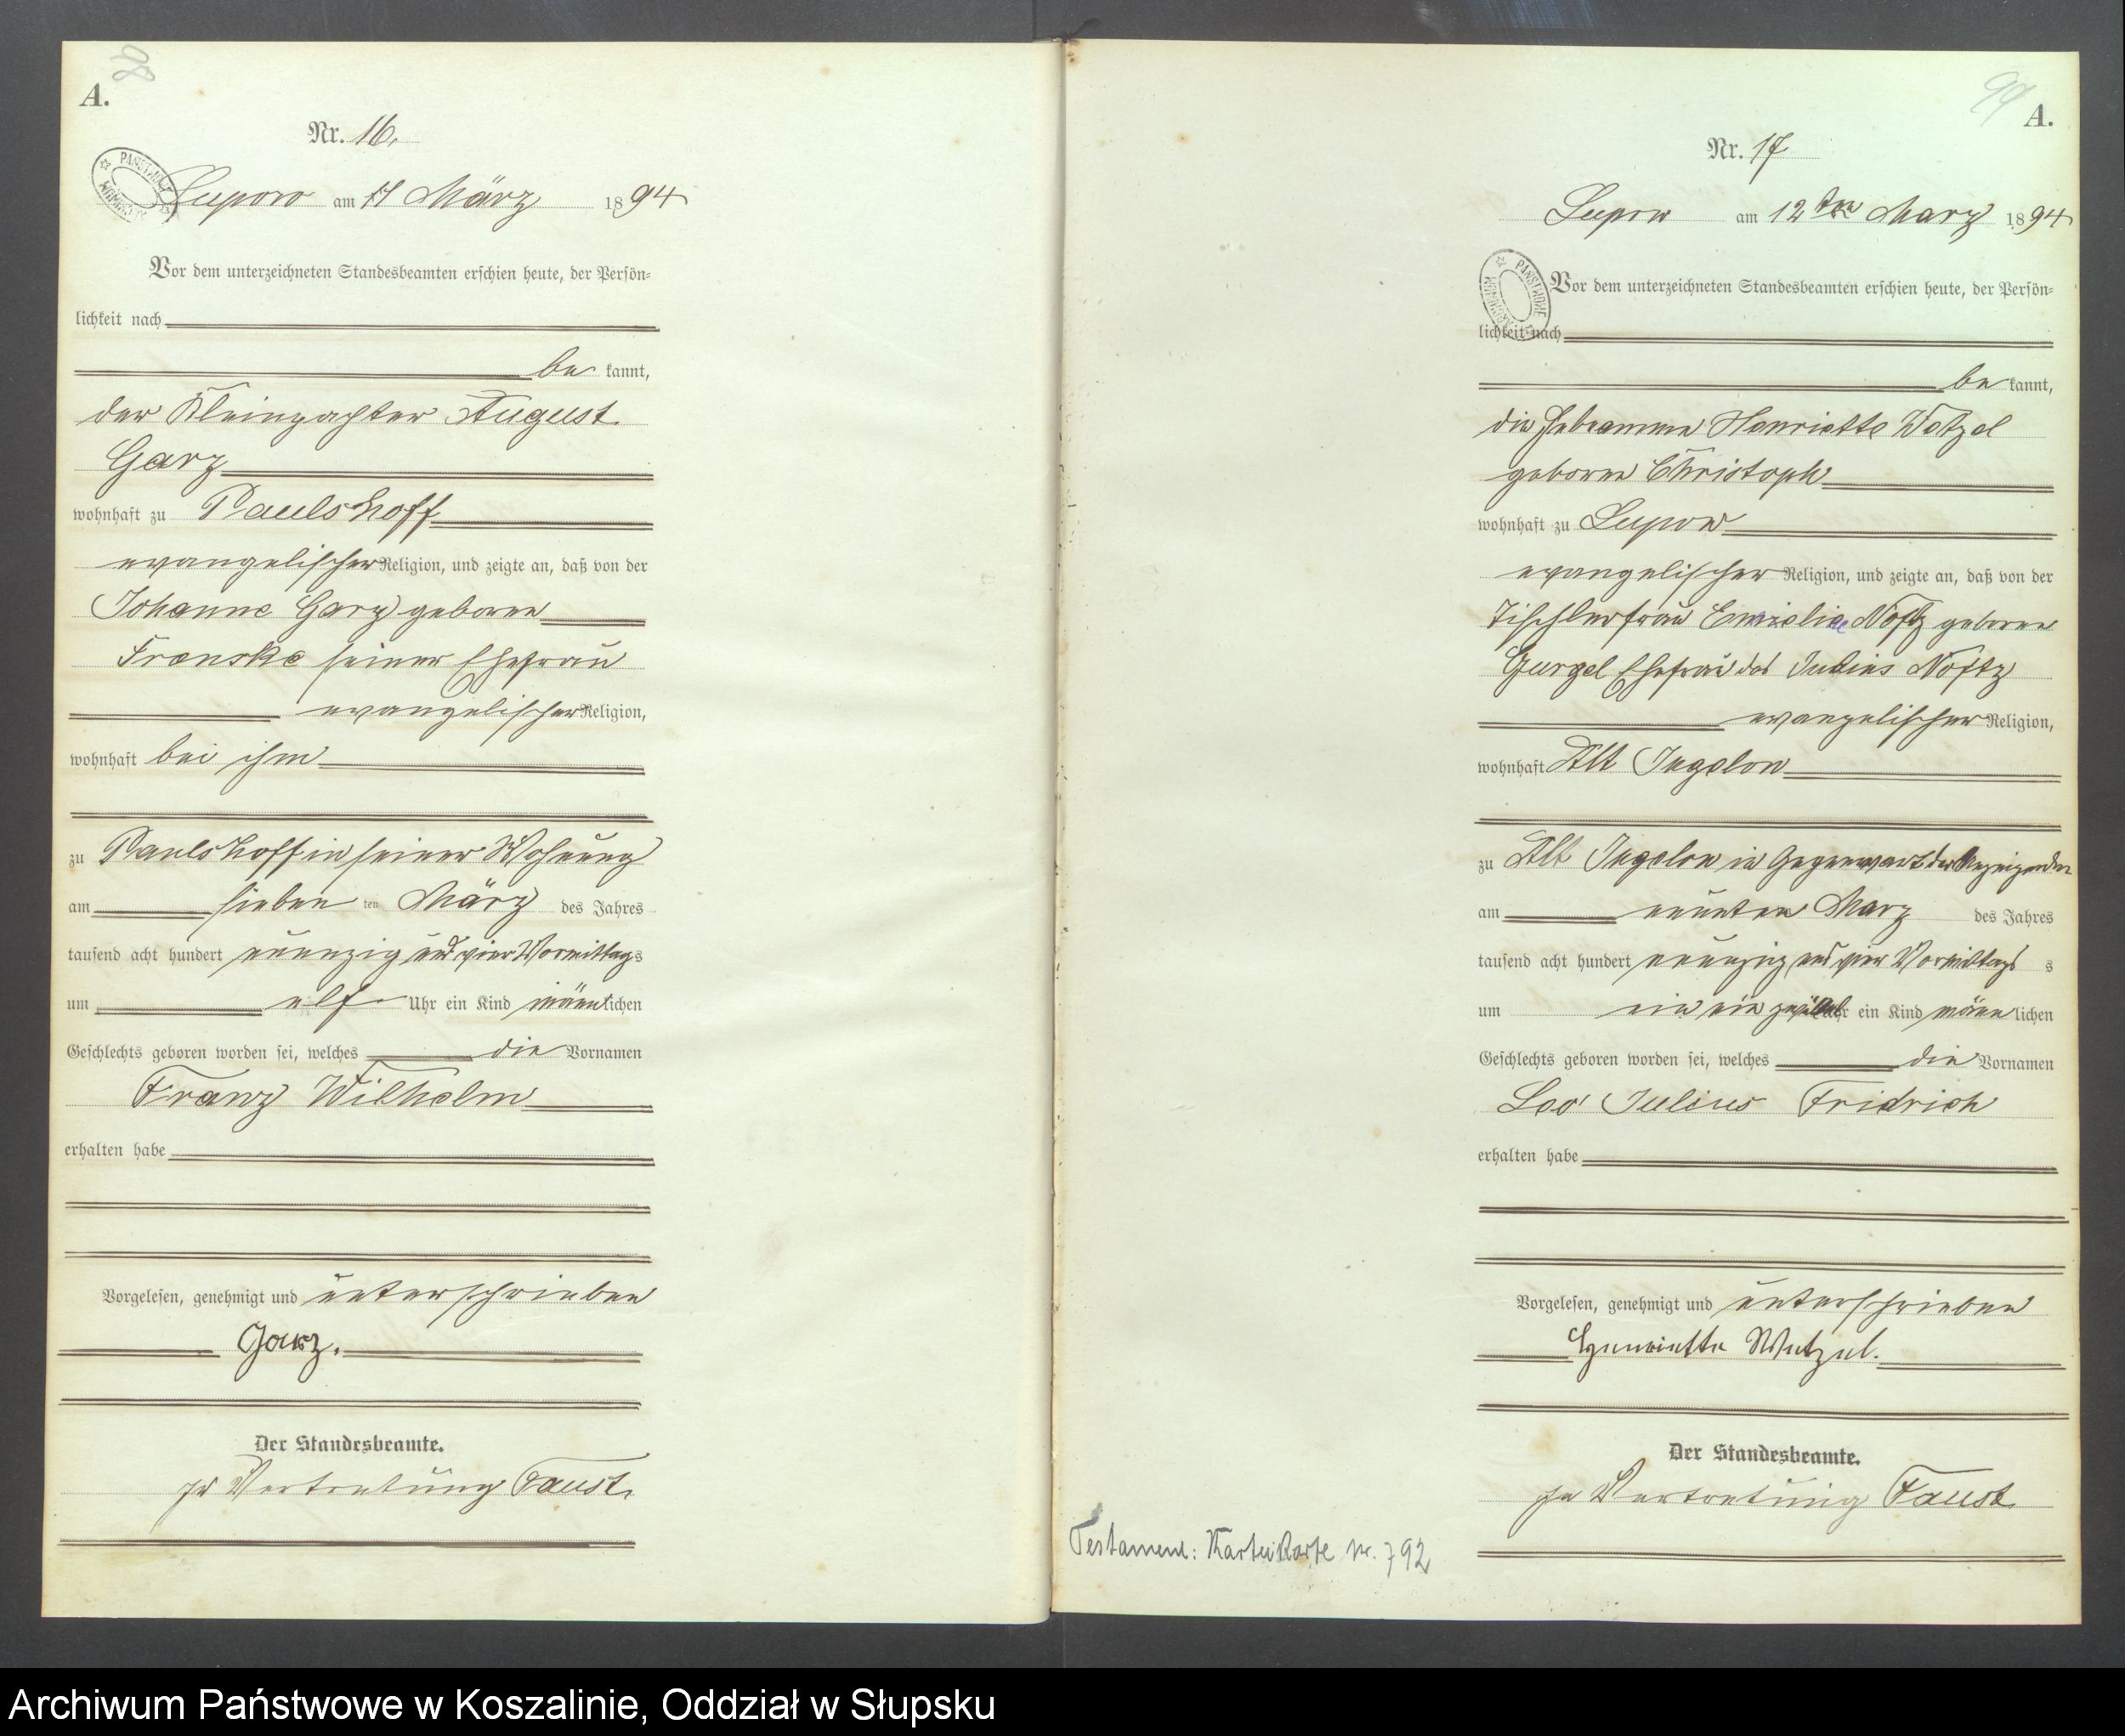 98
A.
Nr. 16.
Lupow am 11 März 1894
Vor dem unterzeichneten Standesbeamten erschien heute, der Persön=
lichkeit nach
be kannt,
der Kleinpachter August
Garz
wohnhaft zu Paulshoff
evangelischer Religion, und zeigte an, daß von der
Johanne Garz geboren
Franske seiner Ehefrau
evangelischer Religion,
wohnhaft bei ihm
zu Paulshoff in seiner Wohnung
am sieben ten März des Jahres
tausend acht hundert neunzig und vier Vormittags
um elf Uhr ein Kind männlichen
Geschlechts geboren worden sei, welches die Vornamen
Franz Wilhelm
erhalten habe
Vorgelesen, genehmigt und unterschrieben
Garz.
Der Standesbeamte.
In Vertretung Faust.
99
A.
Nr. 17
Lupow am 12ten Marz 1894
PAŃSTWOWE
Vor dem unterzeichneten Standesbeamten erschien heute, der Persön=
lichkeit nach
be kannt,
die Hebeamme Henriette Wetzel
geboren Christoph
wohnhaft zu Lupow
evangelischer Religion, und zeigte an, daß von der
Tischlerfrau Noftz geboren
Gurgel Ehefrau des Julius Noftz
evangelischer Religion,
wohnhaft Alt Jugelow
zu Alt Jugelow in Gegenwart der Anzeigenden
am neunten Marz des Jahres
tausend acht hundert neunzig und vier Vormittags s
um ein Uhr ein Kind männ lichen
Geschlechts geboren worden sei, welches die Vornamen
Leo Julius Fridrich
erhalten habe
Vorgelesen, genehmigt und unterschrieben
Henriette Wetzel.
Der Standesbeamte.
In Vertretung Faust.
Testament: Karteikarte Nr. 792
Archiwum Państwowe w Koszalinie, Oddział w Słupsku